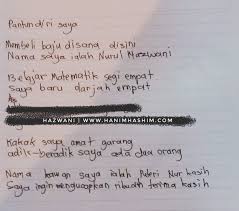 Pantun diri saya
Membeli baju disana disini
Nama saya ialah Nurul Hazwani
Belajar Matematik segi empat
Saya baru darjah empat
HAZWANI | WWW.HANIMHASHIM.COM
Kakak saya amat garang
adik-beradik saya ada dua orang
Nama kawan saya ialah Puteri Nur kasih
Saya ingin mengucapkan ribuan terima kasih